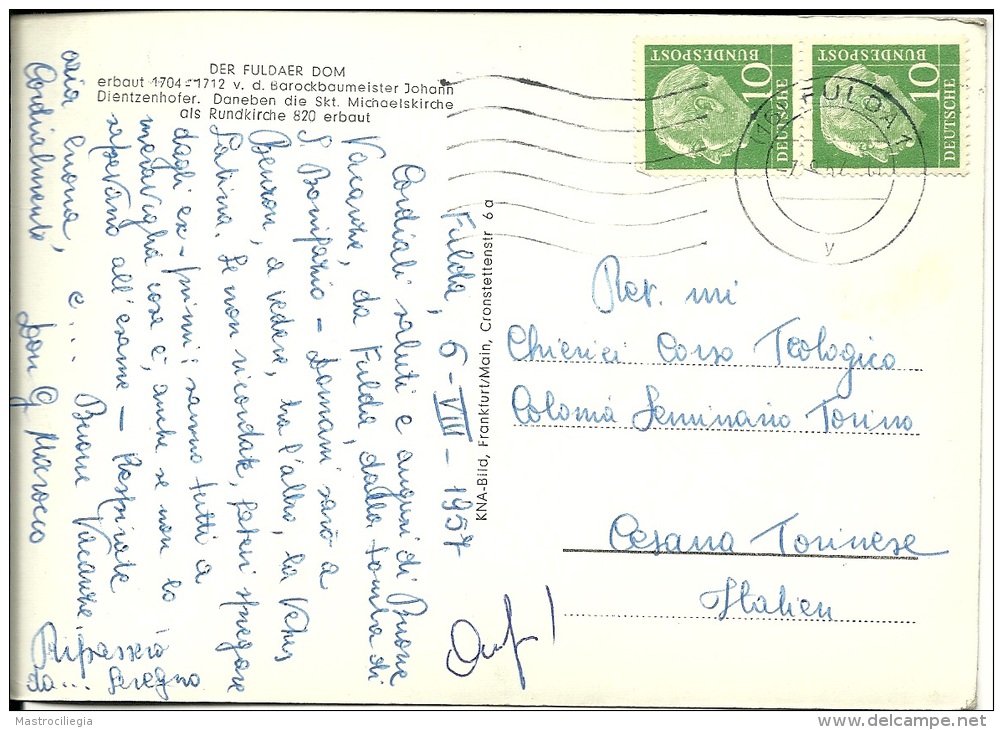 DER FULDAER DOM
erbaut 1704-1712 v. d. Barockbaumeister Johann
Dientzenhofer. Daneben die Skt. Michaelskirche
als Rundkirche 820 erbaut
Fulda, 6-VIII-1957
Cordiali saluti e auguri di Buone
Vacanze, da Fulda, dalla tomba di
S. Bonifazio - Domani sarò a
Beuron, a vedere, tra l'altro, la Vetus
Latina. Se non ricordate, fatevi spiegare
dagli ex-primi: sanno tutti a
meraviglia cos'è, anche se non lo
sapevano all'esame - Respirate
aria buona, e... Buone Vacanze.
Cordialmente Don G Marocco
Ripasserò
da... Seregno
KNA-Bild, Frankfurt/Main, Cronstettenstr 6a
10
DEUTSCHE
BUNDESPOST
10
DEUTSCHE
BUNDESPOST
FULDA
y
Rev. mi
Chierici Corso Teologico
Colonia Seminario Torino
Cesana Torinese
Italien
Mastrociliegia
delcampe.net